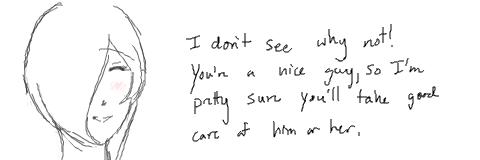 I don't see why not!
You're a nice guy, so I'm
pretty sure you'll take good
care of him or her.